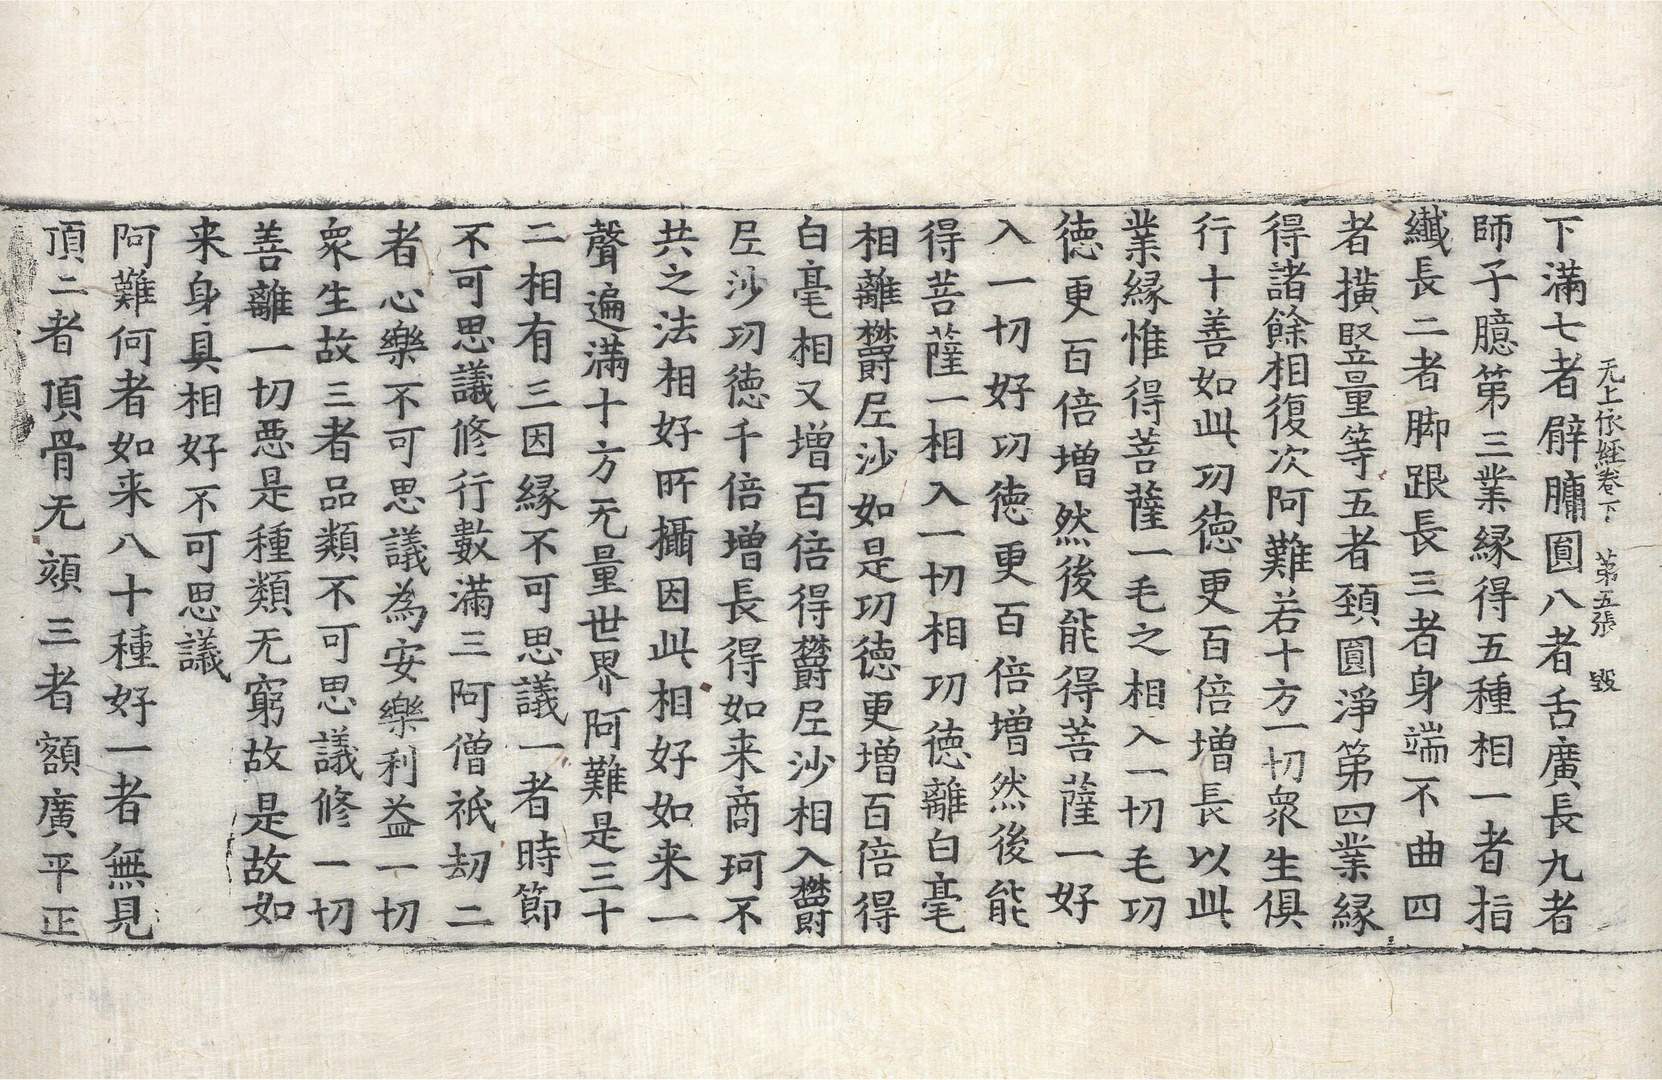 无上依經卷下 第五張 毀
下滿七者臂𦟛圓八者舌廣長九者
師子臆第三業縁得五種相一者指
纖長二者脚跟長三者身端不曲四
者横竪量等五者頚圓淨第四業縁
得諸餘相復次阿難若十方一切衆生俱
行十善如此功徳更百倍増長以此
業縁惟得菩薩一毛之相入一切毛功
徳更百倍増然後能得菩薩一好
入一切好功徳更百倍増然後能
得菩薩一相入一切相功徳離白毫
相離欝尼沙如是功徳更増百倍得
白毫相又増百倍得欝尼沙相入欝
尼沙功徳千倍増長得如来商珂不
共之法相好所攝因此相好如来一
聲遍滿十方无量世界阿難是三十
二相有三因縁不可思議一者時節
不可思議修行數滿三阿僧祇劫二
者心樂不可思議為安樂利益一切
衆生故三者品類不可思議修一切
善離一切惡是種類无窮故是故如
来身真相好不可思議
阿難何者如来八十種好一者無見
頂二者頂骨无頞三者額廣平正